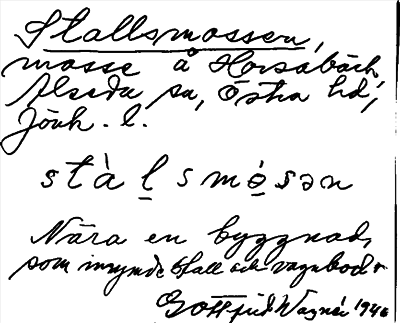 Stallsmossen,
mosse å Horsabäck,
Alseda sn, Östra hd,
Jönk. l.
stàl̲smó̲sən
Nära en byggnad,
som inrymde stall och vagnbod
Gottfrid Wagnér 1946